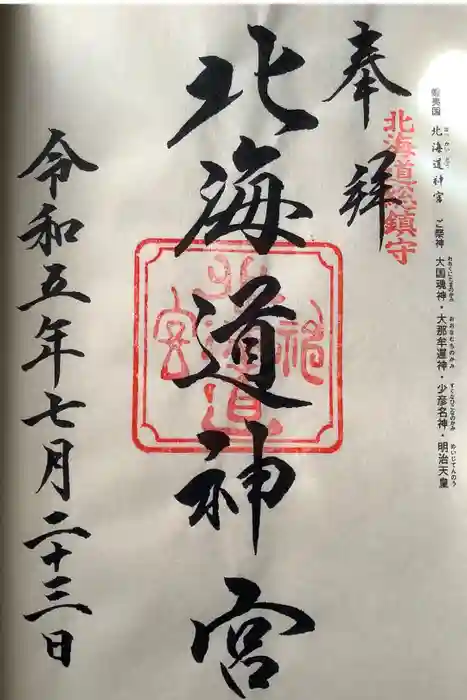 蝦夷国 北海道神宮 ご祭神 大国魂神・大那牟遅神・少彦名神・明治天皇
ほっかいどう
おおくにたまのかみ
おおなむちのかみ
すくなひこなのかみ
めいじてんのう
奉拝
北海道総鎮守
北海道神宮
令和五年七月二十三日